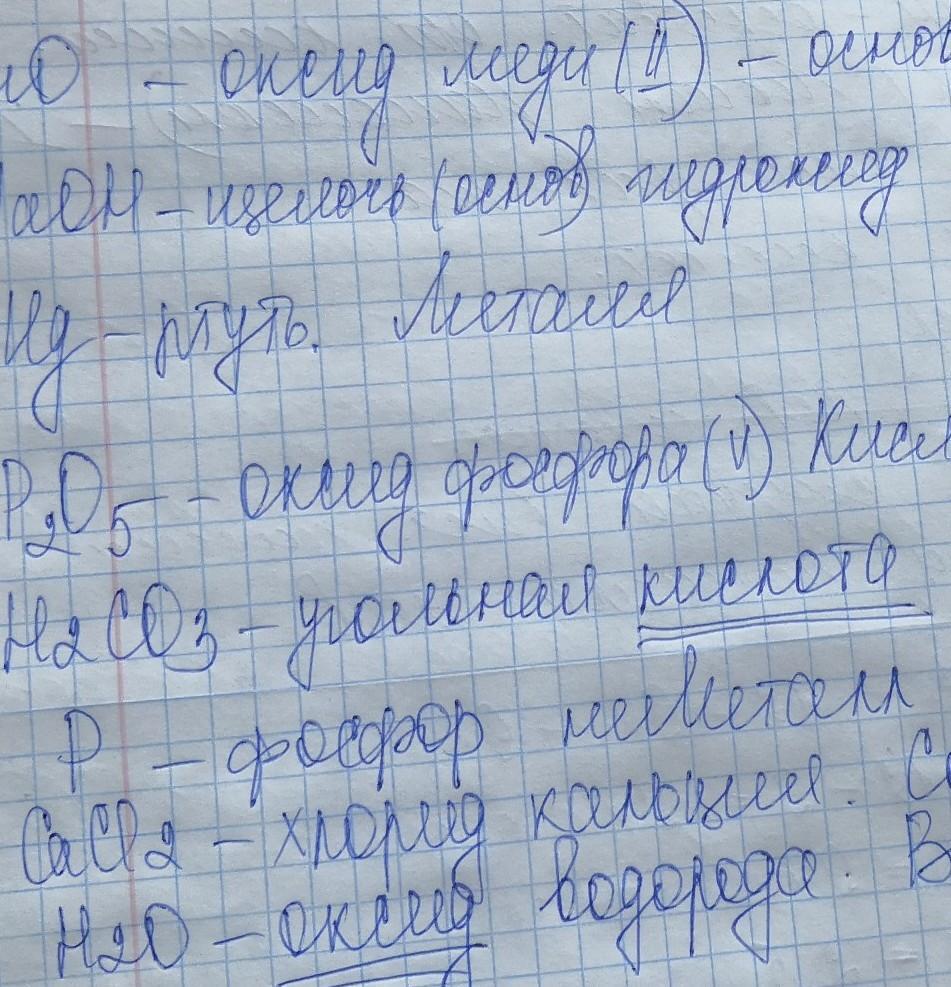 uO – оксид меди (II) – основ
aOH – щелочь (основ) гидроксид
Hg – ртуть. Металл
P₂O₅ – оксид фосфора (V) Кисл
H₂CO₃ – угольная кислота
P – фосфор неметалл
CaCl₂ – хлорид кальция. С
H₂O – оксид водорода. В